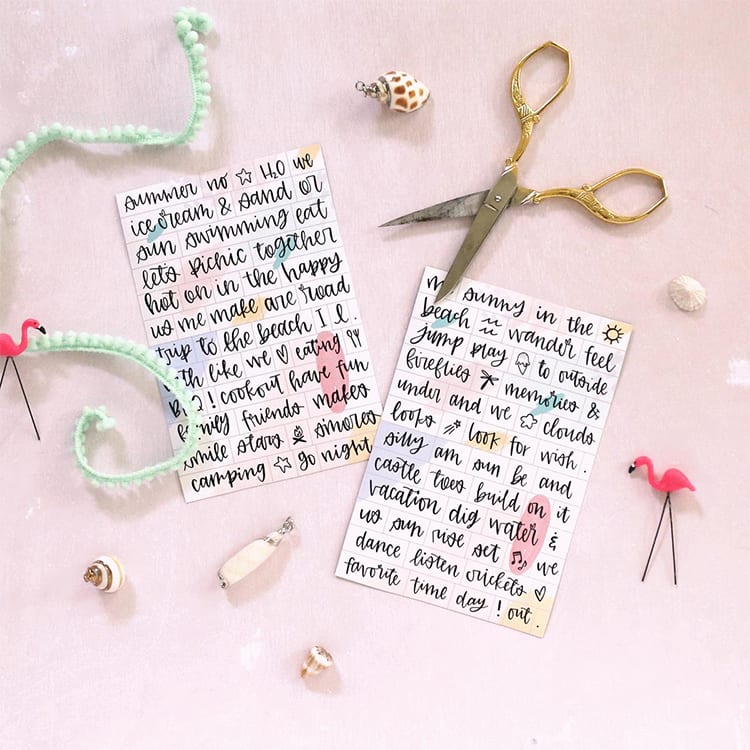 summer no ☆ H₂O we
ice cream & sand or
sun swimming eat
lets picnic together
hot on in the happy
us me make are road
trip to the beach I
with like we ♡ eating
BBQ ! cookout have fun
family friends makes
smile stars smores
camping ☆ go night
my sunny in the
beach wander feel
jump play to outside
fireflies memories &
under and we clouds
looks look for wish .
silly am sun be and
castle toes build on it
vacation dig water &
us sun rise set ♫ we
dance listen crickets ♡
favorite time day ! out .